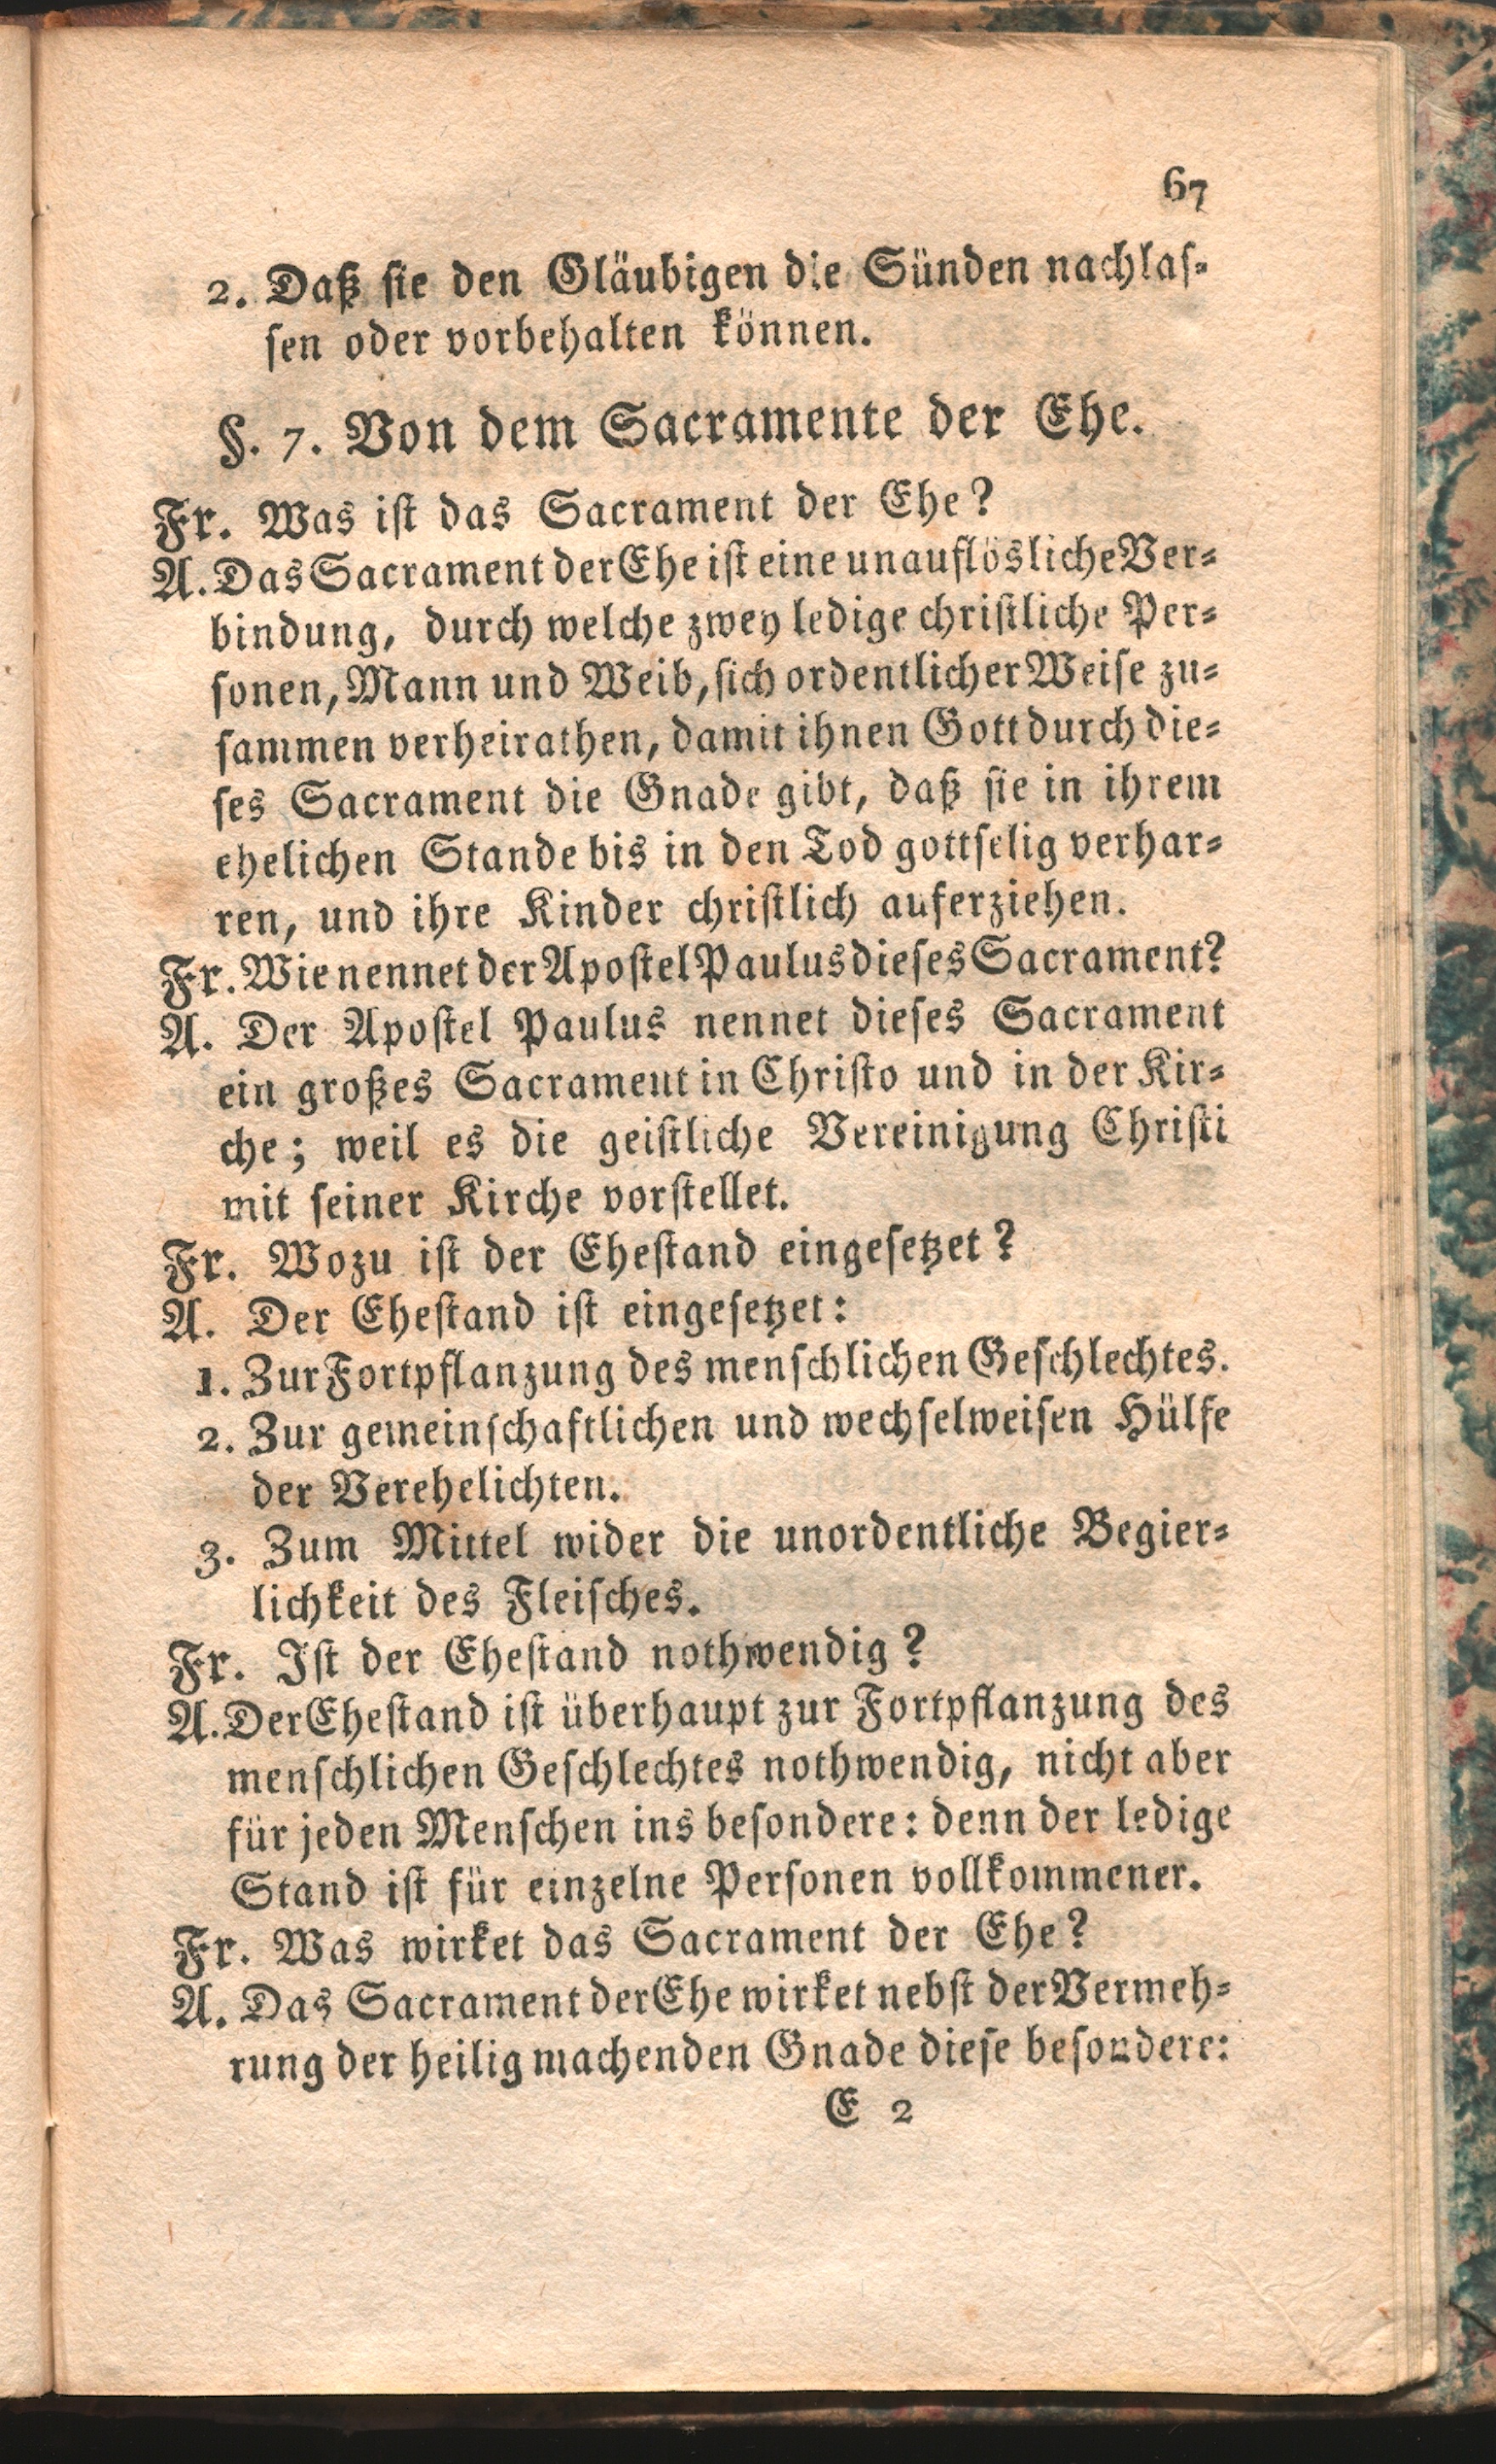 67
2. Daß sie den Gläubigen die Sünden nachlas-
sen oder vorbehalten können.
§. 7. Von dem Sacramente der Ehe.
Fr. Was ist das Sacrament der Ehe?
A. Das Sacrament der Ehe ist eine unauflösliche Ver-
bindung, durch welche zwey ledige christliche Per-
sonen, Mann und Weib, sich ordentlicher Weise zu-
sammen verheirathen, damit ihnen Gott durch die-
ses Sacrament die Gnade gibt, daß sie in ihrem
ehelichen Stande bis in den Tod gottselig verhar-
ren, und ihre Kinder christlich auferziehen.
Fr. Wie nennet der Apostel Paulus dieses Sacrament?
A. Der Apostel Paulus nennet dieses Sacrament
ein großes Sacrament in Christo und in der Kir-
che; weil es die geistliche Vereinigung Christi
mit seiner Kirche vorstellet.
Fr. Wozu ist der Ehestand eingesetzet?
A. Der Ehestand ist eingesetzet:
1. Zur Fortpflanzung des menschlichen Geschlechtes.
2. Zur gemeinschaftlichen und wechselweisen Hülfe
der Verehelichten.
3. Zum Mittel wider die unordentliche Begier-
lichkeit des Fleisches.
Fr. Ist der Ehestand nothwendig?
A. Der Ehestand ist überhaupt zur Fortpflanzung des
menschlichen Geschlechtes nothwendig, nicht aber
für jeden Menschen ins besondere: denn der ledige
Stand ist für einzelne Personen vollkommener.
Fr. Was wirket das Sacrament der Ehe?
A. Das Sacrament der Ehe wirket nebst der Vermeh-
rung der heilig machenden Gnade diese besondere:
E 2